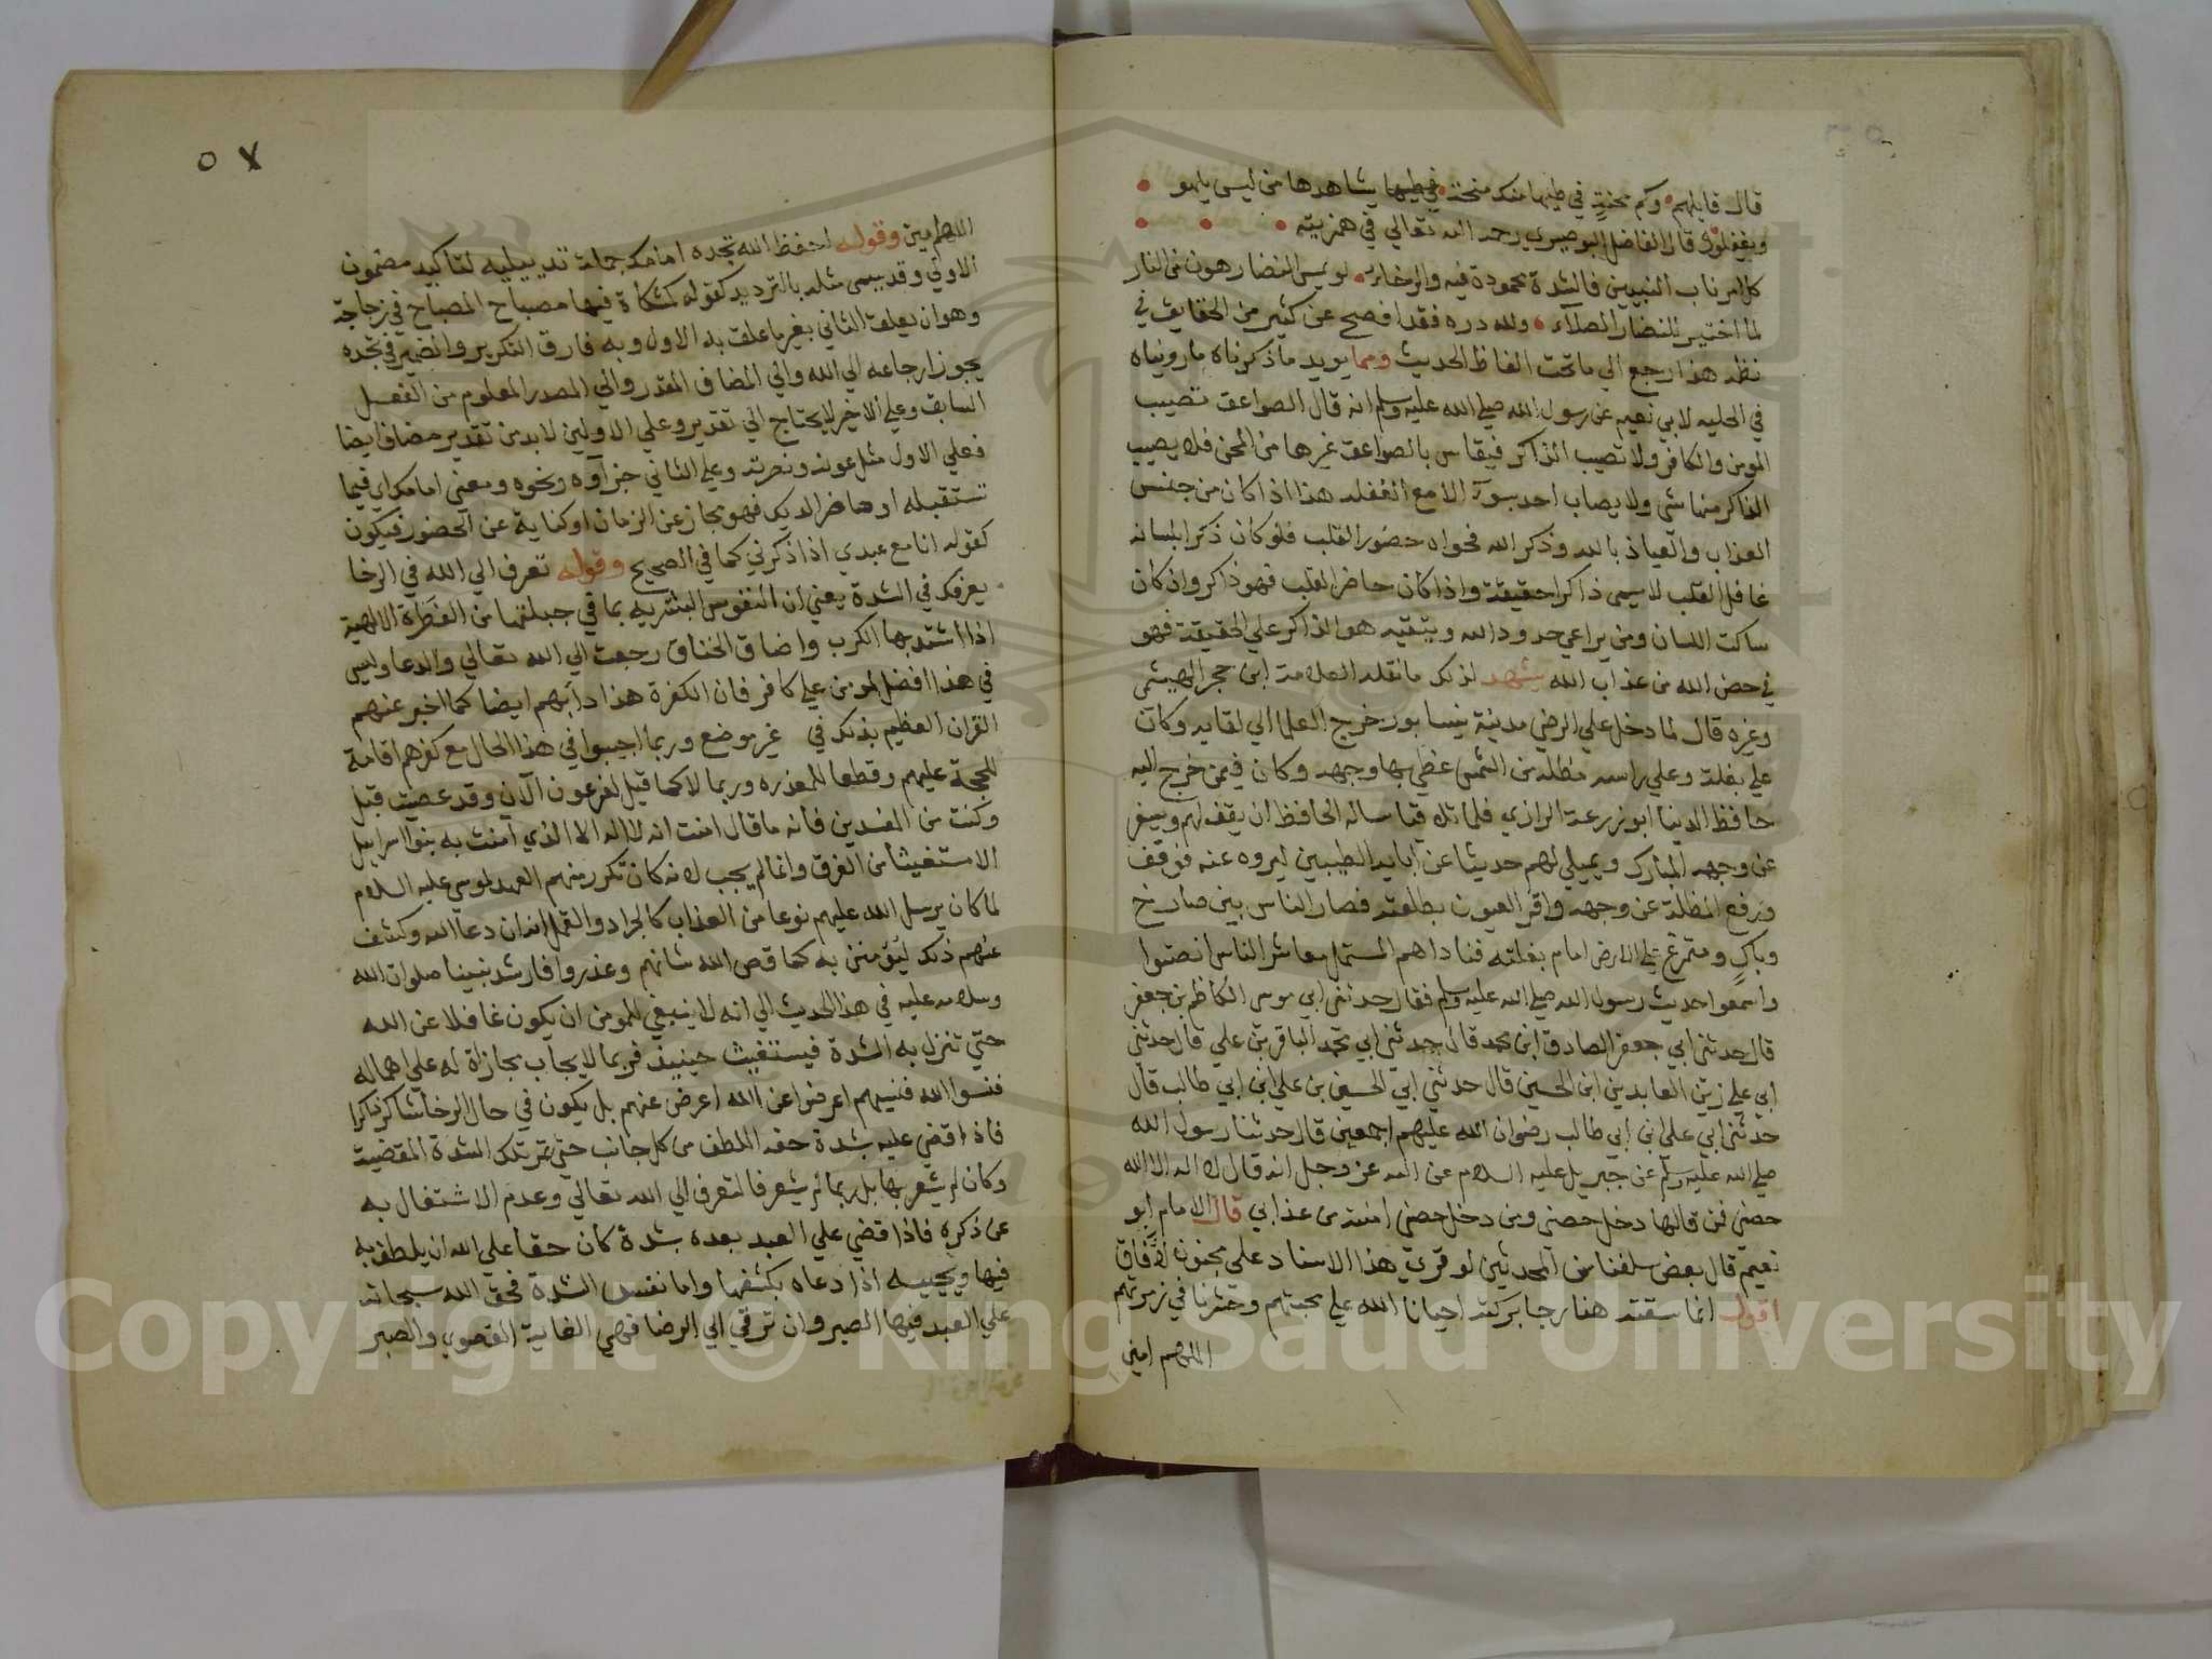 قال قايلهم وكم محنة في طيها منك منحة يشاهدها من ليس يلهو
ويغفل قال الفاضل البوصيري رحمه الله تعالي في همزيته
كل امر ناب النبيين فالشدة محمودة فيه والرخاء لو يمس النضار هون من النار
لما اختير للنضار الصلآء ولله دره فقد افصح عن كثير من الحقايق في
نظمه هذا ارجع الي ما تحت الفاظ الحديث ومما يويد ماذكرناه مارويناه
في الحليه لابي نعيم عن رسول الله صلي الله عليه وسلم انه قال الصواعق تصيب
المومن والكافر ولا تصيب الذاكر فيقاس بالصواعق غيرها من المحن فلا يصيب
الذاكر منها شي ولا يصاب احد بسوء الا مع الغفله هذا اذا كان من جنس
العذاب والعياذ بالله وذكر الله فحواه حضور القلب فلو كان ذكرا بلسانه
غافل القلب لا يسمي ذاكرا حقيقة واذا كان حاضر القلب فهو ذاكر وان كان
ساكت اللسان ومن يراعي حدود الله ويتقيه هو الذاكر علي الحقيقة فهو
في حصن الله من عذاب الله يشهد لذلك مانقله العلامة ابن حجر الهيثمي
وغيره قال لما دخل علي الرضي مدينة نيسابور خرج العلما الي لقايه وكان
علي بغلة وعلي راسه مظله من الشمس غطي بها وجهه وكان فيمن خرج اليه
حافظ الدنيا ابو زرعة الرازي فلما تلاقيا ساله الحافظ ان يقف لهم ويسفر
عن وجهه المبارك ويملي لهم حديثا عن ابايه الطيبين ليروه عنه فوقف
ورفع المظلة عن وجهه واقر العيون بطلعته فصار الناس بين صارخ
وباكٍ ومتمرغ علي الارض امام بغلته فناداهم المستملي معاشر الناس انصتوا
واسمعوا حديث رسول الله صلي الله عليه وسلم فقال حدثني ابي موسي الكاظم بن جعفر
قال حدثني ابي جعفر الصادق ابن محمد قال حدثني ابي محمد الباقر بن علي قال حدثني
ابي علي زين العابدين ابن الحسين قال حدثني ابي الحسين بن علي ابن ابي طالب قال
حدثني ابي علي ابن ابي طالب رضوان الله عليهم اجمعين قال حدثنا رسول الله
صلي الله عليه وسلم عن جبريل عليه السلام عن الله عز وجل انه قال لا اله الا الله
حصني فمن قالها دخل حصني ومن دخل حصني امنته من عذابي قال الامام ابو
نعيم قال بعض سلفنا من المحدثين لو قرئ هذا الاسناد علي مجنون لافاق
اقول انما سقته هنا رجا بركته احيانا الله علي محبتهم وحشرنا في زمرتهم
اللهم امين
٥٧
اللهم امين وقوله احفظ الله تجده امامك جملة تدييلية لتاكيد مضمون
الاولي وقد يسمي مثله بالترديد كقوله كمشكاة فيها مصباح المصباح في زجاجة
وهو ان يعلق الثاني بغير ما علق به الاول وبه فارق التكرير والضمير في تجده
يجوز ارجاعه الي الله والي المضاف المقدر والي المصدر المعلوم من الفعل
السابق وعلي الاخير لا يحتاج الي تقدير وعلي الاولين لابد من تقدير مضاف ايضا
فعلي الاول مثل عونه ونصرته وعلي الثاني جزآوه ونحوه ومعني امامك اي فيما
تستقبله او حاضر الديك فهو مجاز عن الزمان او كناية عن الحضور فيكون
كقوله انا مع عبدي اذا ذكرني كما في الصحيح وقوله تعرف الي الله في الرخا
يعرفك في الشدة يعني ان النفوس البشريه بما في جبلتها من الفطرة الالهية
اذا اشتد بها الكرب واضاق الخناق رجعت الي الله تعالي والدعا وليس
في هذا افضل لمومن علي كافر فان الكفرة هذا دابهم ايضا كما اخبر عنهم
القران العظيم بذلك في غير موضع وربما اجيبوا في هذا الحال مع كفرهم اقامة
للحجة عليهم وقطعا للمعذره وربما لا كما قيل لفرعون آلآن وقد عصيت قبل
وكنت من المفسدين فانه ما قال امنت انه لا اله الا الذي امنت به بنوا اسراييل
الا مستغيثا من الغرق وانما لم يجب لانه كان تكرر منهم العهد لموسي عليه السلام
لما كان يرسل الله عليهم نوعا من العذاب كالجراد والقمل انه ان دعا الله وكشف
عنهم ذلك ليؤمنن به كما قص الله شانهم وغدروا فارشد نبينا صلوات الله
وسلامه عليه في هذا الحديث الي انه لا ينبغي للمومن ان يكون غافلا عن الله
حتي تنزل به الشدة فيستغيث حينيذ فربما لا يجاب مجازاة له علي اهماله
فنسوا الله فنسيهم اعرضوا عن الله اعرض عنهم بل يكون في حال الرخا شاكرا ذاكرا
فاذا قضي عليه بشدة حفه اللطف من كل جانب حتي تمر تلك الشدة المقضية
وكان لم يشعر بها بل ربما لم يشعر فالتعرف الي الله تعالي وعدم الاشتغال به
عن ذكره فاذا قضي علي العبد بعده بشدة كان حقا علي الله ان يلطف به
فيها ويجيبه اذا دعاه بكشفها واما نفس الشدة فحق الله سبحانه
علي العبد فيها الصبر وان ترقي الي الرضا فهي الغاية القصوي والصبر
Copyright © King Saud University